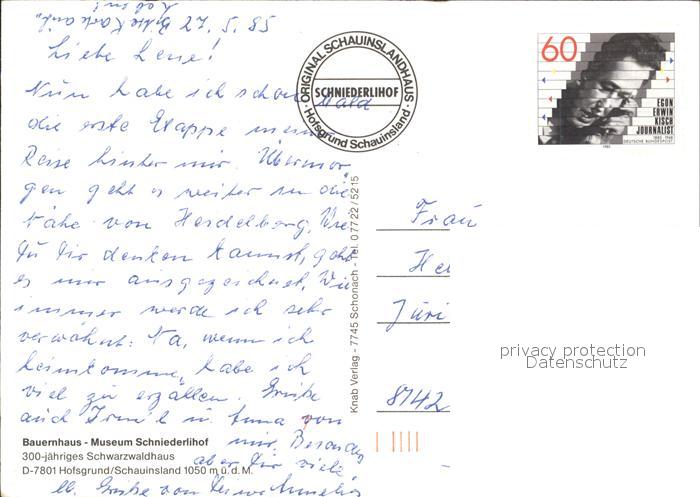 27. 5. 85
Liebe Lene!
Nun habe ich schon bald
die erste Etappe meiner
Reise hinter mir. Übermor-
gen geht es weiter in die
Nähe von Heidelberg. Wie
Du Dir denken kannst, geht
es mir ausgezeichnet. Wie
immer werde ich sehr
verwöhnt. Na, wenn ich
heimkomme, habe ich
viel zu erzählen. Grüße
auch Irmi u. Anna von
mir. Besonders
aber Dir viele
lb. Grüße von
Bauernhaus - Museum Schniederlihof
300-jähriges Schwarzwaldhaus
D-7801 Hofsgrund/Schauinsland 1050 m ü. d. M.
· ORIGINAL SCHAUINSLANDHAUS ·
SCHNIEDERLIHOF
Hofsgrund Schauinsland
Knab Verlag - 7745 Schonach - Tel. 0 77 22 / 52 15
60
EGON
ERWIN
KISCH
JOURNALIST
1885-1948
DEUTSCHE BUNDESPOST
1985
Frau
8142
privacy protection
Datenschutz